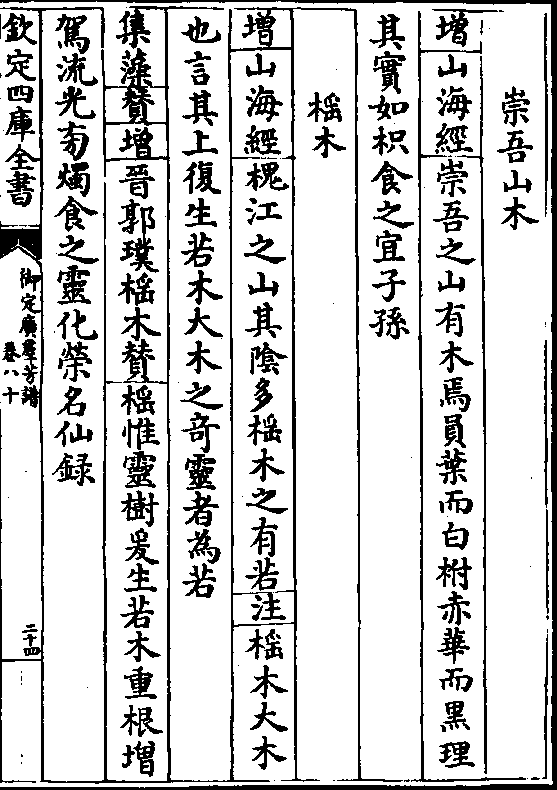 崇吾山木
增山海經崇吾之山有木焉員葉而白柎赤華而黑理
其實如枳食之宜子孫
榣木
增山海經槐江之山其陰多榣木之有若注榣木大木
也言其上復生若木大木之奇靈者為若
集藻贊增晉郭璞榣木贊榣惟靈樹爰生若木重根增
駕流光旁燭食之靈化榮名仙録
欽定四庫全書
御定廣羣芳譜
卷八十
二十四